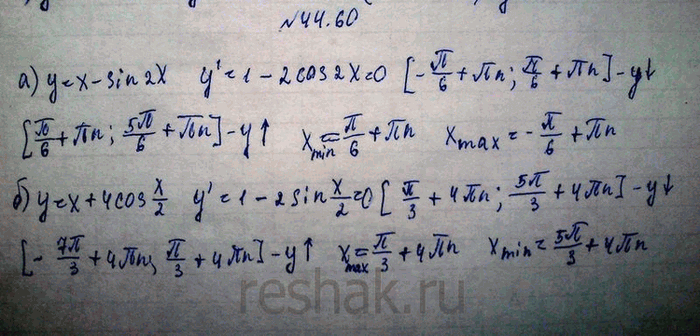 №44.60
а) y=x-sin2x y'=1-2cos2x=0 [-π/6+πn; π/6+πn]-y↓
[π/6+πn; 5π/6+πn]-y↑ x min=π/6+πn x max=-π/6+πn
б) y=x+4cos x/2 y'=1-2sin x/2=0 [π/3+4πn; 5π/3+4πn]-y↓
[-7π/3+4πn; π/3+4πn]-y↑ x max=π/3+4πn x min=5π/3+4πn
reshak.ru